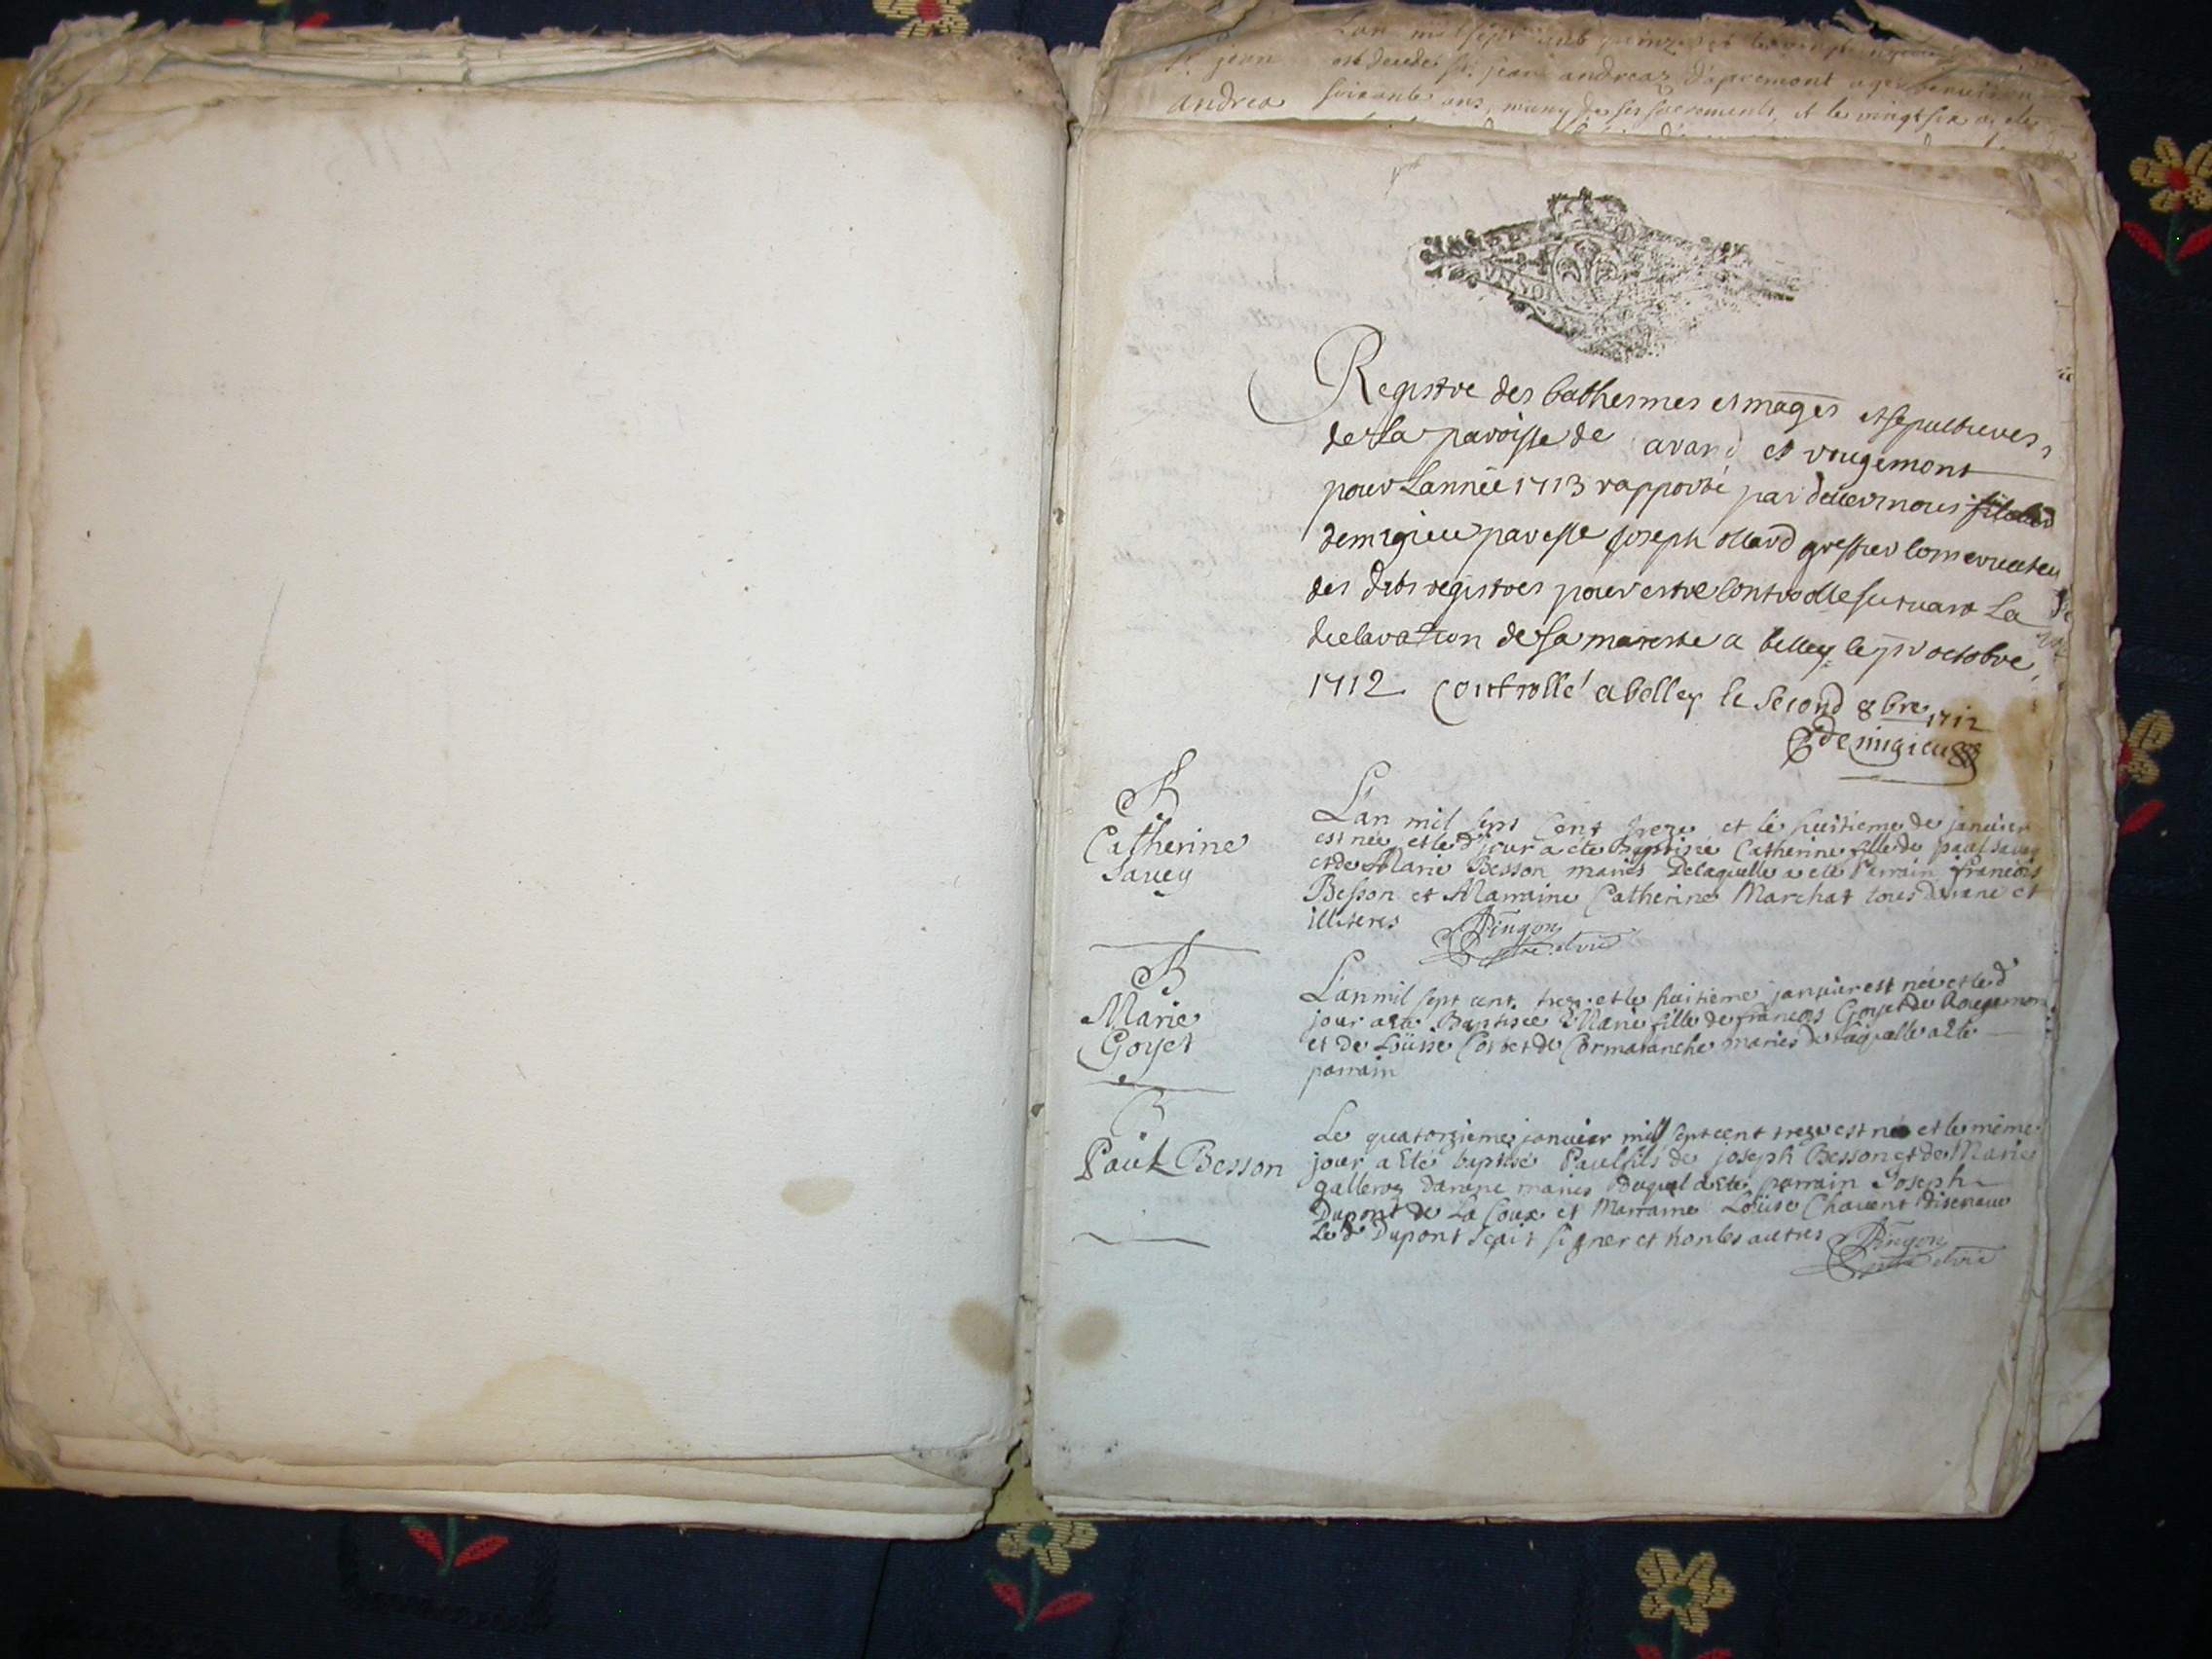 Lan mil sept cent quinze et le
St. jean
est decedé Sr. jean andreaz d'apremont agé denviron
andrea
soixante ans, muny de ses sacrements, et le vingt six a ete
Registre des bathesmes et mages et sepultures
de La paroisse de aranc et rougemont
pour Lannee 1713 rapporté par devernous
demigieu par esse Joseph ollard greffier Conservateu
des dits registres pour estre Controolle suivant La
declaration de sa majeste a belley le pr octobre
1712 Controllé a belley le second 8bre 1712
demigieu
B
Catherine
Savey
L'an mil sept Cent treze et le huitieme de janvier
est née et le d jour a ete Baptisée Catherine fille de paul savey
et de Marie Besson mariés De laquelle a ete Parrain francois
Besson et Marraine Catherine Marchat tous daranc et
illiteres Pingon
B
Marie
Goyet
L'an mil sept cent treze et le huitieme janvier est née et le d
jour a ete Baptisée Marie fille de francois Goyet de Rougemon
et de Loüise Corbet de Cormaranche mariés de laquelle a ete
parrain
B
Paul Besson
Le quatorzieme janvier mill sept cent treze est né et le méme
jour a Eté baptisé Paul fils de joseph Besson et de Marie
galleroz daranc mariés duquel a Ete parrain Joseph
Dupont de La Coux et Marraine Loüise Chavent
Le d Dupont sçait signer et non les autres Pingon